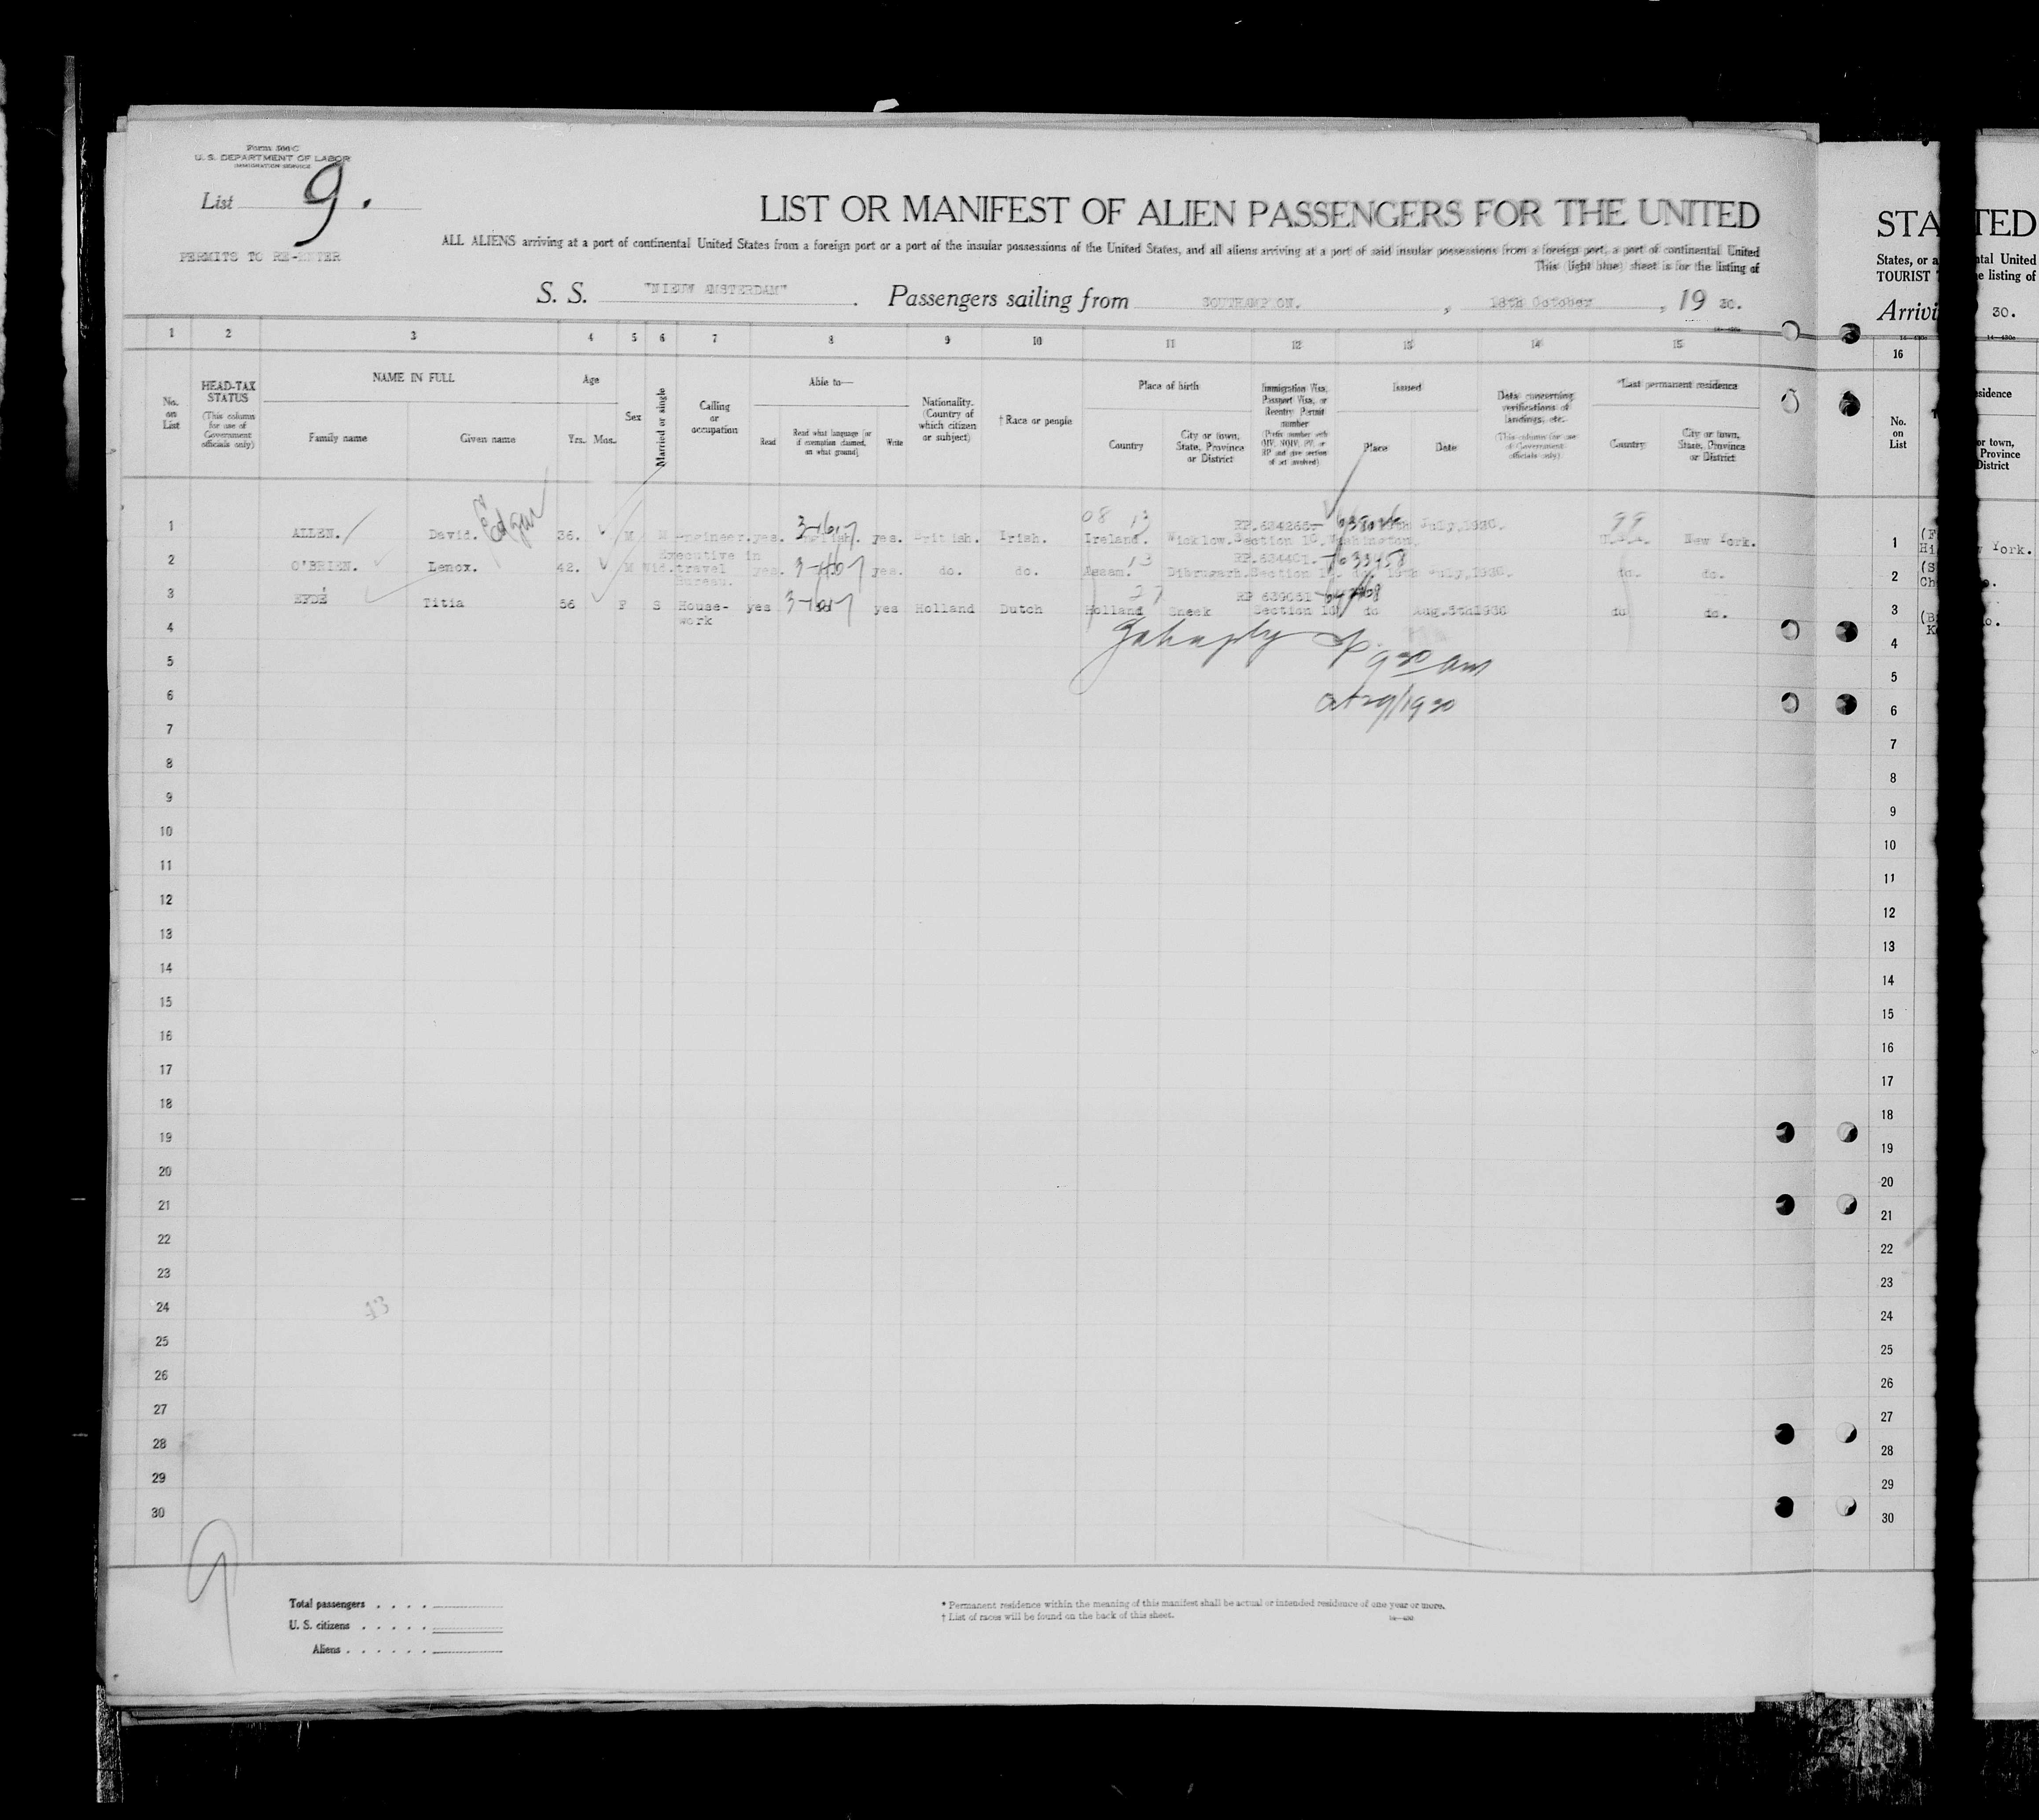 Form 500 C
U. S. DEPARTMENT OF LABOR
IMMIGRATION SERVICE
List 9.
PERMITS TO RE-ENTER
LIST OR MANIFEST OF ALIEN PASSENGERS FOR THE UNITED
ALL ALIENS arriving at a port of continental United States from a foreign port or a port of the insular possessions of the United States, and all aliens arriving at a port of said insular possessions from a foreign port, a port of continental United
This (light blue) sheet is for the listing of
S. S. "NIEUW AMSTERDAM". Passengers sailing from SOUTHAMPTON. , 18th October , 19 30.
1 2 3 4 5 6 7 8 9 10 11 12 13 14 15
No. on List
HEAD-TAX STATUS
(This column for use of Government officials only)
NAME IN FULL
Family name Given name
Age
Yrs. Mos.
Sex
Married or single
Calling or occupation
Able to—
Read
Read what language (or if exemption claimed, on what ground)
Write
Nationality. (Country of which citizen or subject)
† Race or people
Place of birth
Country
City or town, State, Province or District
Immigration Visa, Passport Visa, or Reentry Permit number
(Prefix number with QIV, NQIV, PV, or RP and give section of act involved)
Issued
Place Date
Data concerning verifications of landings, etc.
(This column for use of Government officials only)
*Last permanent residence
Country
City or town, State, Province or District
1 ALLEN. David. Edgar 36. M M Engineer. yes. English. yes. British. Irish. Ireland. Wicklow. Section 10. Washington. July, 1930. U.S.A. New York.
2 O'BRIEN. Lenox. 42. M Wid. Executive in travel Bureau. yes. yes. do. do. Assam. Dibrugarh. Section 10. do. July, 1930. do. do.
3 EFDÉ Titia 56 F S House-work yes yes Holland Dutch Holland Sneek RP 639051 Section 10 do Aug. 5th 1930 do do.
9 30 am
Oct 29/1930
4
5
6
7
8
9
10
11
12
13
14
15
16
17
18
19
20
21
22
23
24
25
26
27
28
29
30
9
Total passengers . . . .
U. S. citizens . . . . .
Aliens . . . . . .
* Permanent residence within the meaning of this manifest shall be actual or intended residence of one year or more.
† List of races will be found on the back of this sheet.
STA
States, or a
TOURIST
Arrivi
16
No. on List
1
2
3
4
5
6
7
8
9
10
11
12
13
14
15
16
17
18
19
20
21
22
23
24
25
26
27
28
29
30
TED
ntal United
e listing of
30.
esidence
or town,
Province
District
York.